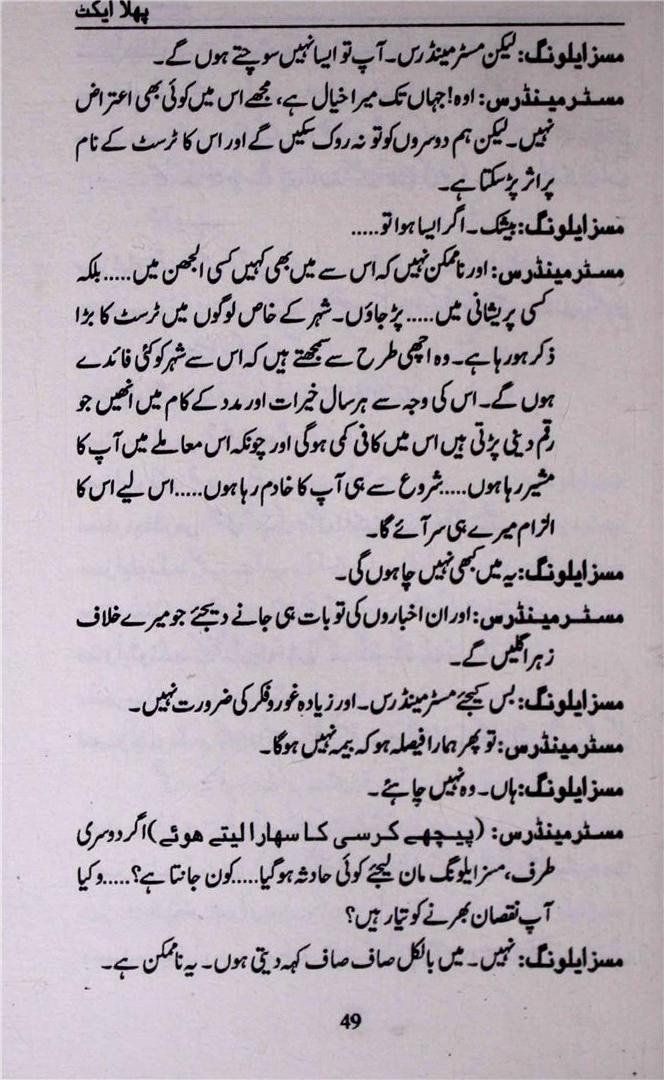 پہلا ایکٹ
مسز ایلونگ: لیکن مسٹر مینڈرس۔ آپ تو ایسا نہیں سوچتے ہوں گے۔
مسٹر مینڈرس: اوہ! جہاں تک میرا خیال ہے، مجھے اس میں کوئی بھی اعتراض
نہیں۔ لیکن ہم دوسروں کو تو نہ روک سکیں گے اور اس کا ٹرسٹ کے نام
پر اثر پڑ سکتا ہے۔
مسز ایلونگ: بیشک۔ اگر ایسا ہوا تو.....
مسٹر مینڈرس: اور ناممکن نہیں کہ اس سے میں بھی کہیں کسی الجھن میں..... بلکہ
کسی پریشانی میں..... پڑ جاؤں۔ شہر کے خاص لوگوں میں ٹرسٹ کا بڑا
ذکر ہو رہا ہے۔ وہ اچھی طرح سے سمجھتے ہیں کہ اس سے شہر کو کئی فائدے
ہوں گے۔ اس کی وجہ سے ہر سال خیرات اور مدد کے کام میں انھیں جو
رقم دینی پڑتی ہیں اس میں کافی کمی ہوگی اور چونکہ اس معاملے میں آپ کا
مشیر رہا ہوں..... شروع سے ہی آپ کا خادم رہا ہوں..... اس لیے اس کا
الزام میرے ہی سر آئے گا۔
مسز ایلونگ: یہ میں کبھی نہیں چاہوں گی۔
مسٹر مینڈرس: اور ان اخباروں کی تو بات ہی جانے دیجئے جو میرے خلاف
زہر اگلیں گے۔
مسز ایلونگ: بس کیجئے مسٹر مینڈرس۔ اور زیادہ غور و فکر کی ضرورت نہیں۔
مسٹر مینڈرس: تو پھر ہمارا فیصلہ ہو کہ بیمہ نہیں ہوگا۔
مسز ایلونگ: ہاں۔ وہ نہیں چاہئے۔
مسٹر مینڈرس: (پیچھے کرسی کا سہارا لیتے ہوئے) اگر دوسری
طرف، مسز ایلونگ مان لیجئے کوئی حادثہ ہو گیا..... کون جانتا ہے؟..... و کیا
آپ نقصان بھرنے کو تیار ہیں؟
مسز ایلونگ: نہیں۔ میں بالکل صاف صاف کہہ دیتی ہوں۔ یہ ناممکن ہے۔
49